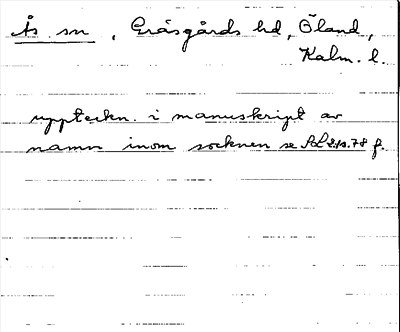 Ås sn, Gräsgårds hd, Öland,
Kalm. l.
uppteckn. i manuskript av
namn inom socknen se 78 f.